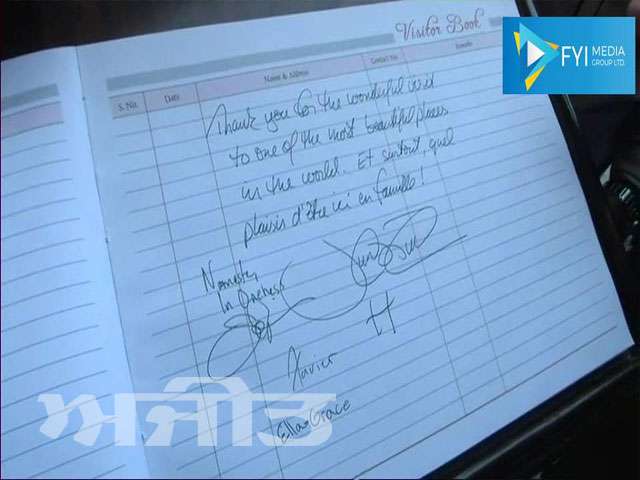 Visitor Book
FYI MEDIA
GROUP LTD.
S. No. Date Name & Address Contact No. Remarks
Thank you for the wonderful visit
to one of the most beautiful places
in the world. Et surtout, quel
plaisir d'être ici en famille!
Namaste,
In Oneness
Xavier H
Ella-Grace
ਅਜੀਤ